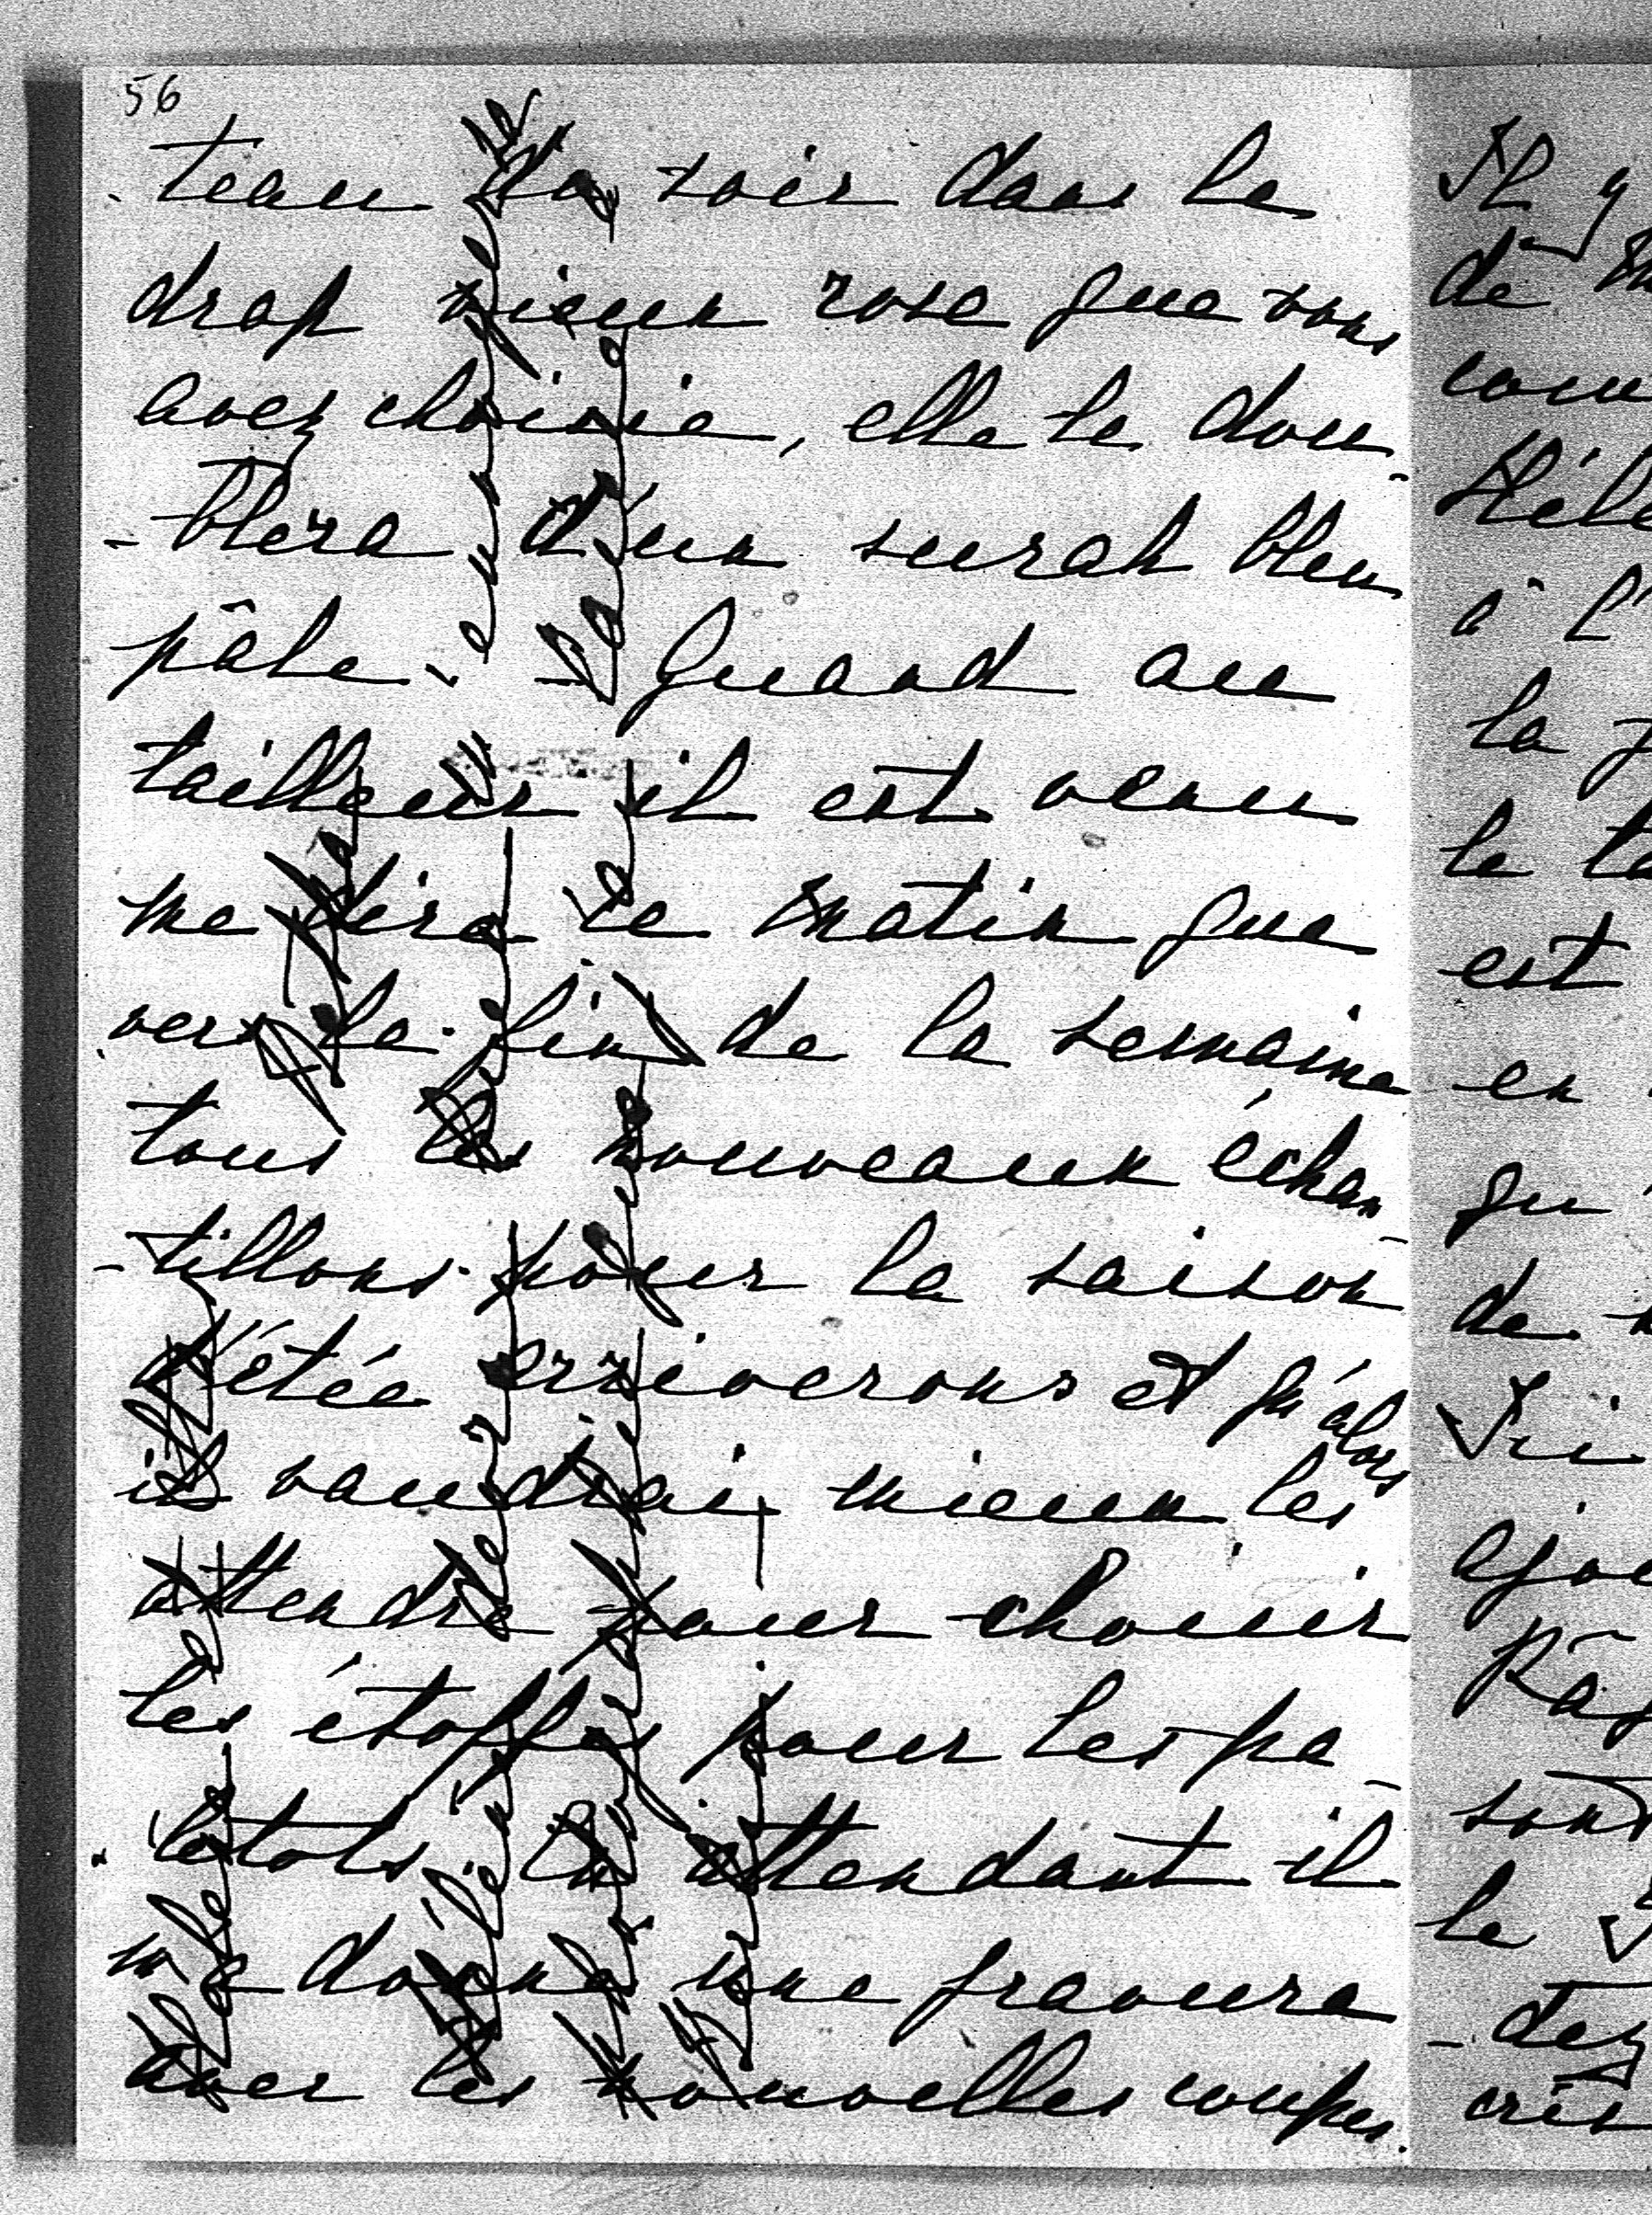 56
teau du soir dans le
drap vieux rose que vous
avez choisie, elle le dou-
-blera d'un surah bleu
pâle. - Quand au
tailleur il est venu
me dire ce matin que
vers la fin de la semaine
tous les nouveaux échan-
-tillons pour la saison
d'étée arriverons et qu'alors
il vaudrai mieux les
attendre pour choisir
les étoffes pour les pa-
letots. En attendant il
me donne une gravure
avec les nouvelles coupes.
Il y
de
à l'
la
le
est
en
qu'
de
le